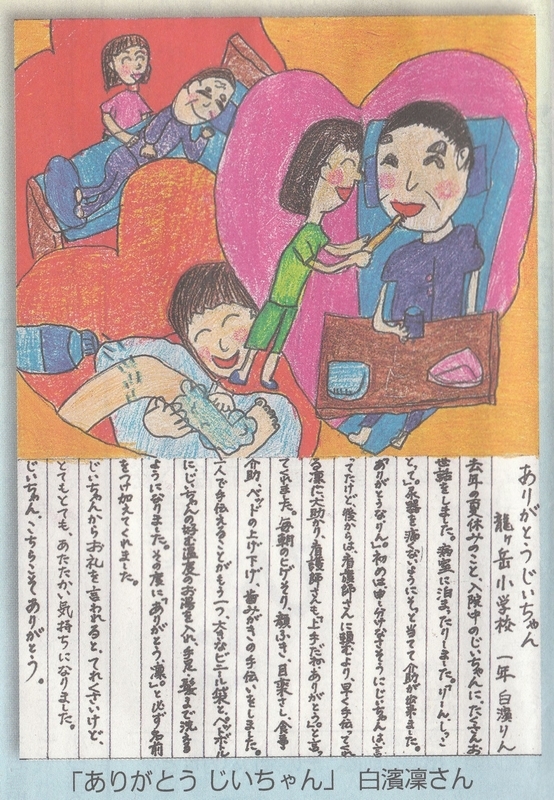 ありがとうじいちゃん
龍ヶ岳小学校 一年 白濱りん
去年の夏休みのこと、入院中のじいちゃんに、たくさんお
世話をしました。病室に泊まったりしました。「りーん、しっこ
とって。」尿器を痛くないようにそっと当てて介助が出来ました。
「ありがとうなりん。」初めは申し分けなさそうにじいちゃんは、言
ってたけど、後からは、看護師さんに頼むより、早く手伝ってくれ
る凛に大助かり、看護師さんも、「上手だね、ありがとう。」と言っ
てくれました。毎朝のヒゲそり、顔ふき、目薬さし、食事
介助、ベッドの上げ下げ、歯みがきの手伝いをしました。
一人で手伝えることがもう一つ、大きなビニール袋とペットボトル
に、じいちゃんの好む温度のお湯を入れ、手足、髪まで洗える
ようになりました。その度に、「ありがとう、凛。」と必ず名前
をつけ加えてくれました。
じいちゃんからお礼を言われると、てれくさいけど、
とてもとても、あたたかい気持ちになりました。
じいちゃん、こちらこそ、ありがとう。
「ありがとう じいちゃん」 白濱凜さん